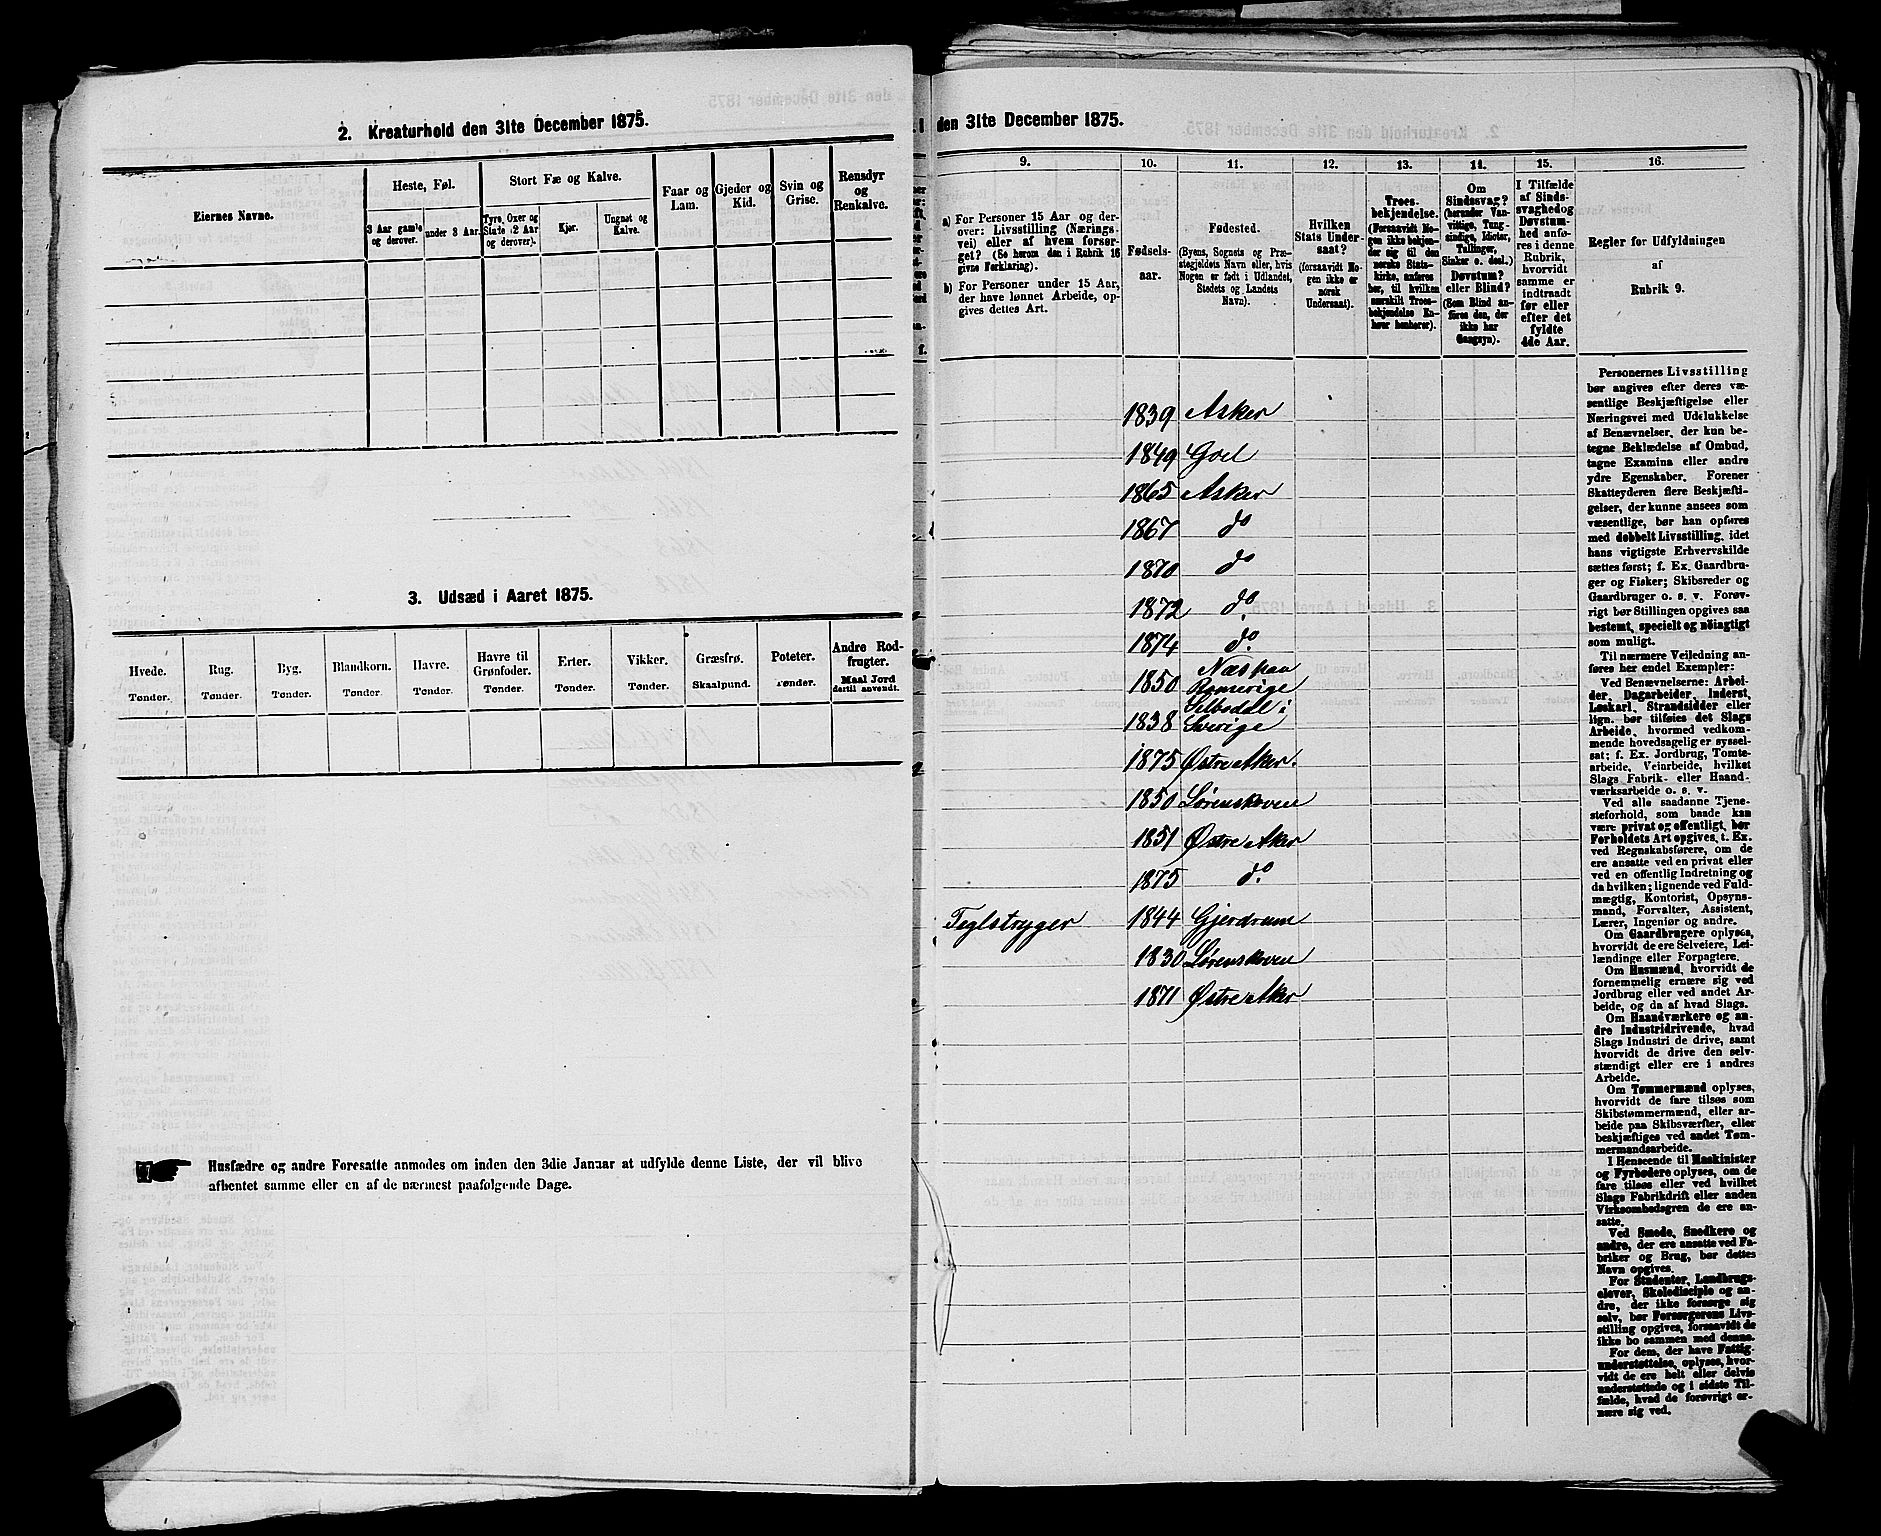 2. Kreaturhold den 31te December 1875.
Eiernes Navne.
Heste, Føl.
3 Aar gamle og derover.
under 3 Aar.
Stort Fæ og Kalve.
Tyre, Oxer og Stude (2 Aar og derover).
Kjør.
Ungnøt og Kalve.
Faar og Lam.
Gjeder og Kid.
Svin og Grise.
Rensdyr og Renkalve.
3. Udsæd i Aaret 1875.
Hvede. Tønder.
Rug. Tønder.
Byg. Tønder.
Blandkorn. Tønder.
Havre. Tønder.
Havre til Grønfoder. Tønder.
Erter. Tønder.
Vikker. Tønder.
Græsfrø. Skaalpund.
Poteter. Tønder.
Andre Rodfrugter. Maal Jord dertil anvendt.
Husfædre og andre Foresatte anmodes om inden den 3die Januar at udfylde denne Liste, der vil blive
afhentet samme eller en af de nærmest paafølgende Dage.
den 31te December 1875.
9.
a) For Personer 15 Aar og derover: Livsstilling (Næringsvei) eller af hvem forsørget? (Se herom den i Rubrik 16 givne Forklaring).
b) For Personer under 15 Aar, der have lønnet Arbeide, opgives dettes Art.
10.
Fødselsaar.
11.
Fødested.
(Byens, Sognets og Præstegjeldets Navn eller, hvis Nogen er født i Udlandet, Stedets og Landets Navn).
12.
Hvilken Stats Undersaat?
(forsaavidt Nogen ikke er norsk Undersaat).
13.
Troesbekjendelse.
(Forsaavidt Nogen ikke bekjender sig til den norske Statskirke, anføres her, til hvilken særskilt Troesbekjendelse Enhver henhører).
14.
Om Sindssvag? (herunder Vanvittige, Tungsindige, Idioter, Tullinger, Sinker o. desl.) Døvstum? eller Blind? (Som Blind anføres den, der ikke har Gangsyn).
15.
I Tilfælde af Sindssvaghed og Døvstumhed anføres i denne Rubrik, hvorvidt samme er indtraadt før eller efter det fyldte 4de Aar.
16.
Regler for Udfyldningen
af
Rubrik 9.
1839 Asker
1849 Goel
1865 Asker
1867 do
1870 do
1872 do.
1874 do.
1850
1838 Selbodal i Sverige
1875 Østre Aker.
1850 Lørenskoven
1851 Østre Aker
1875 do.
Teglstryger 1844 Gjerdrum
1830 Lørenskoven
1871 Østre Aker
Personernes Livsstilling
bør angives efter deres væ-
sentlige Beskjæftigelse eller
Næringsvei med Udelukkelse
af Benævnelser, der kun be-
tegne Beklædelse af Ombud,
tagne Examina eller andre
ydre Egenskaber. Forener
Skatteyderen flere Beskjæfti-
gelser, der kunne ansees som
væsentlige, bør han opføres
med dobbelt Livsstilling, idet
hans vigtigste Erhvervskilde
sættes først; f. Ex. Gaardbru-
ger og Fisker; Skibsreder og
Gaardbruger o. s. v. Forøv-
rigt bør Stillingen opgives saa
bestemt, specielt og nøiagtigt
som muligt.
Til nærmere Veiledning an-
føres her endel Exempler:
Ved Benævnelserne: Arbei-
der, Dagarbeider, Inderst,
Løskarl, Strandsidder eller
lign. bør tilføies det Slags
Arbeide, hvormed vedkom-
mende hovedsagelig er syssel-
sat; f. Ex. Jordbrug, Tomte-
arbeide, Veiarbeide, hvilket
Slags Fabrik- eller Haand-
værksarbeide o. s. v.
Ved alle saadanne Tjene-
steforhold, som baade kan
være privat og offentligt, bør
Forholdets Art opgives, t. Ex.
ved Regnskabsførere, om de
ere ansatte ved en privat eller
ved en offentlig Indretning og
da hvilken; lignende ved Fuld-
mægtig, Kontorist, Opsyns-
mand, Forvalter, Assistent,
Lærer, Ingeniør og andre.
Om Gaardbrugere oplyses,
hvorvidt de ere Selveiere, Lei-
lændinge eller Forpagtere.
Om Husmænd, hvorvidt de
fornemmelig ernære sig ved
Jordbrug eller ved andet Ar-
beide, og da af hvad Slags.
Om Haandværkere og an-
dre Industridrivende, hvad
Slags Industri de drive, samt
hvorvidt de drive den selv-
stændigt eller ere i andres
Arbeide.
Om Tømmermænd oplyses,
hvorvidt de fare tilsøs som
Skibstømmermænd, eller ar-
beide paa Skibsværfter, eller
beskjæftiges ved andet Tøm-
mermandsarbeide.
I Henseende til Maskinister
og Fyrbødere oplyses, om de
fare tilsøs eller ved hvilket
Slags Fabrikdrift eller anden
Virksomhedsgren de ere an-
satte.
Ved Smede, Snedkere og
andre, der ere ansatte ved Fa-
briker og Brug, bør dettes
Navn opgives.
For Studenter, Landbrugs-
elever, Skoledisciple og an-
dre, der ikke forsørge sig
selv, bør Forsørgerens Livs-
stilling opgives, forsaavidt de
ikke bo sammen med denne.
For dem, der have Fattig-
understøttelse, oplyses, hvor-
vidt de ere helt eller delvis
understøttede og i sidste Til-
fælde, hvad de forøvrigt er-
nære sig ved.